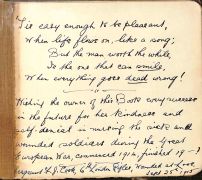 'Tis easy enough to be pleasant,
When life flows on, like a song;
But the man worth the while,
Is the one that can smile,
When everything goes dead wrong!
Wishing the owner of this Book every success
in the future for her kindness and
self-denial in nursing the sick and
wounded soldiers during the Great
European War, commenced 1914, finished 19 - ?
Sergeant J. Cook, 6th London Rifles, wounded at Loos
Sept 25th 1915